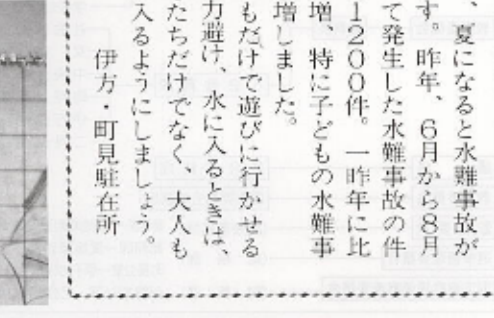 、夏になると水難事故が
す。昨年、6月から8月
て発生した水難事故の件
1200件。一昨年に比
増、特に子どもの水難事
増しました。
もだけで遊びに行かせる
力避け、水に入るときは、
たちだけでなく、大人も
入るようにしましょう。
伊方・町見駐在所